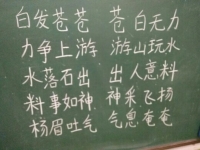 白发苍苍 苍白无力
力争上游 游山玩水
水落石出 出人意料
料事如神 神采飞杨
杨眉吐气 气息奄奄